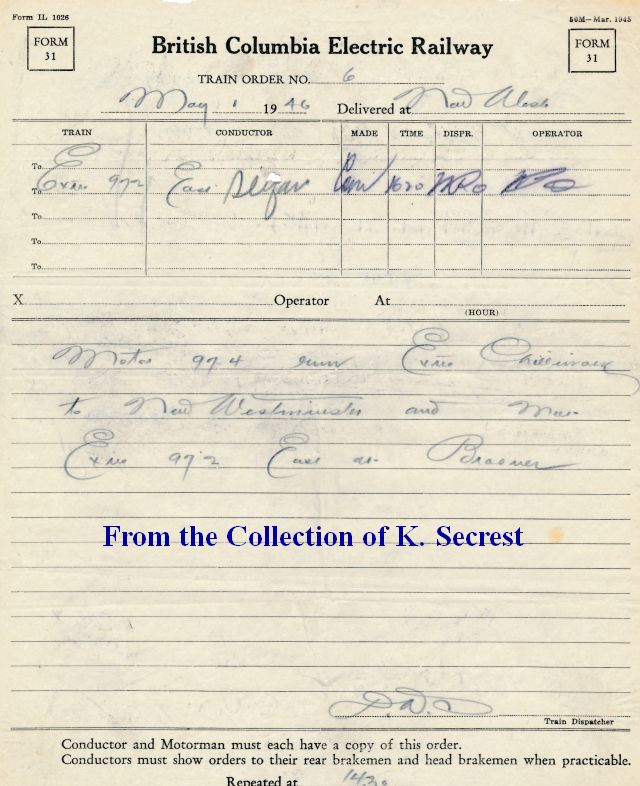 Form IL 1026
50M—Mar. 1945
FORM 31
British Columbia Electric Railway
FORM 31
TRAIN ORDER NO. 6
May 1 1946 Delivered at New West
TRAIN CONDUCTOR MADE TIME DISPR. OPERATOR
To
To Exra 972 East Com 1620
To
To
To
X Operator At
(HOUR)
Motor 974 run Exra Chilliwack
to New Westminster and
Exra 972 East at
From the Collection of K. Secrest
Train Dispatcher
Conductor and Motorman must each have a copy of this order.
Conductors must show orders to their rear brakemen and head brakemen when practicable.
Repeated at